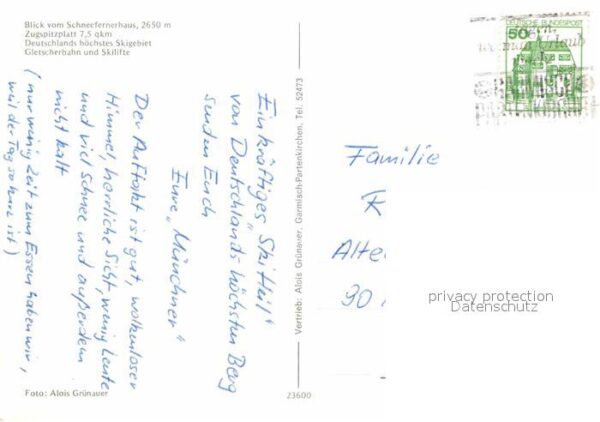 Blick vom Schneefernerhaus, 2650 m
Zugspitzplatt 7,5 qkm
Deutschlands höchstes Skigebiet
Gletscherbahn und Skilifte
Ein kräftiges "Ski Heil"
von Deutschlands höchsten Berg
senden Euch
Eure "Münchner"
Der Auftakt ist gut, wolkenloser
Himmel, herrliche Sicht, wenig Leute
und viel Schnee und außerdem
nicht kalt
(nur wenig Zeit zum Essen haben wir,
weil der Tag so kurz ist)
Foto: Alois Grünauer
Vertrieb: Alois Grünauer, Garmisch-Partenkirchen, Tel. 52473
23600
DEUTSCHE BUNDESPOST
50
man Urlaub
Familie
K
Alte
30
privacy protection
Datenschutz